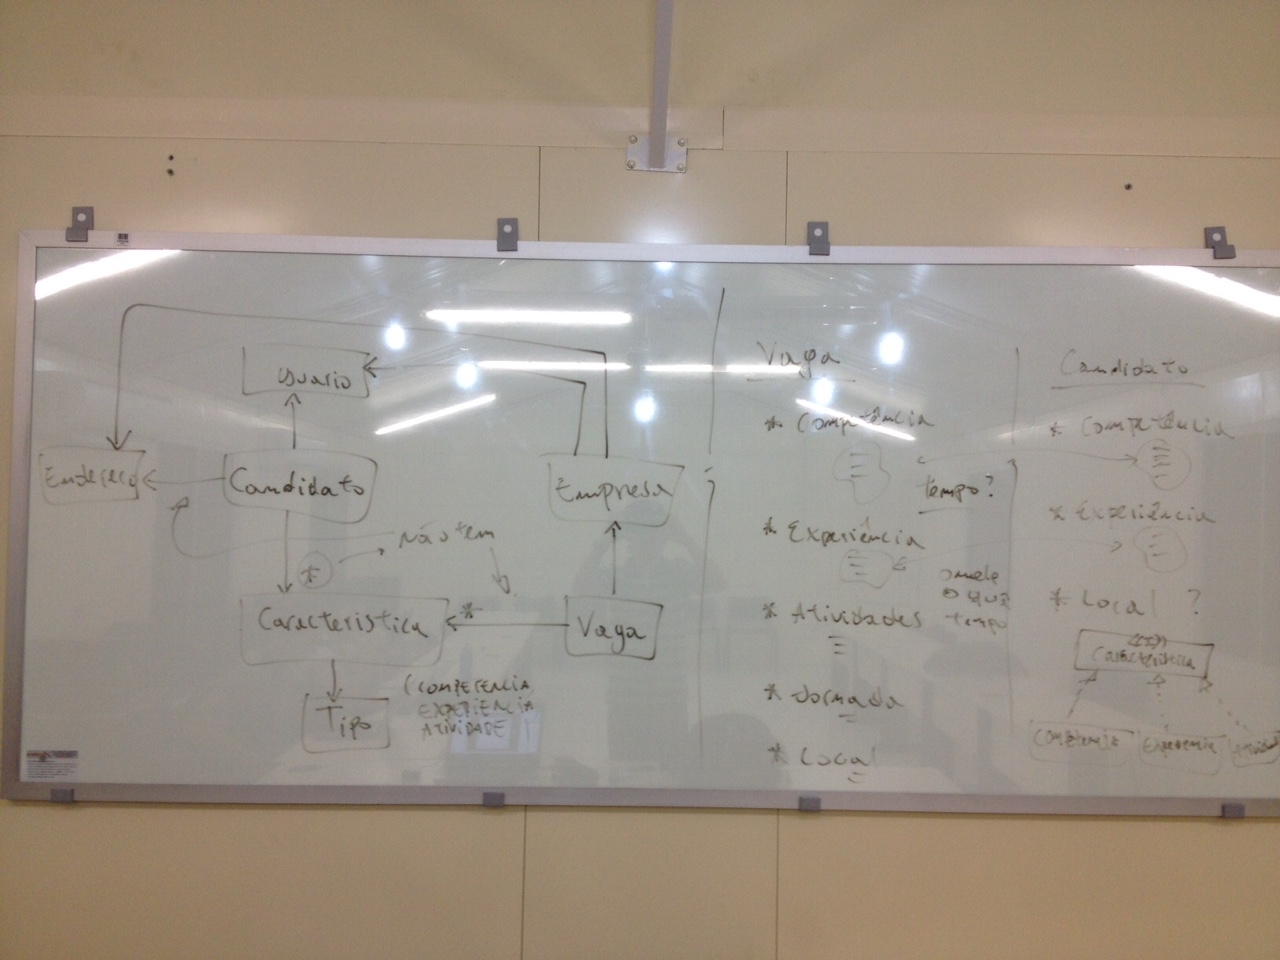 Usuario
Endereço
Candidato
Empresa
não tem
*
Caracteristica
*
Vaga
Tipo
(COMPETENCIA
EXPERIENCIA
ATIVIDADE
Vaga
* Competência
tempo?
* Experiência
* Atividades
* Jornada
* Local
onde
o que
tempo
Candidato
* Competência
* Experiência
* Local ?
<<I>>
Caracteristica
Competencia
Experiencia